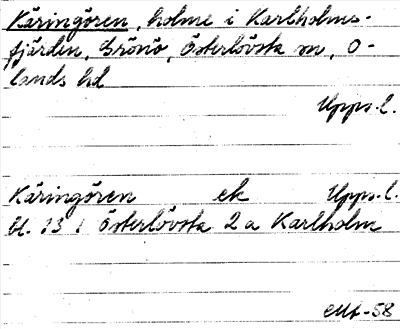 Käringören, holme i Karlholms-
fjärden, Grönö, Österlövsta sn, O-
lands hd
Upps. l.
Käringören ek Upps. l.
bl. 13 i Österlövsta 2 a Karlholm
-58